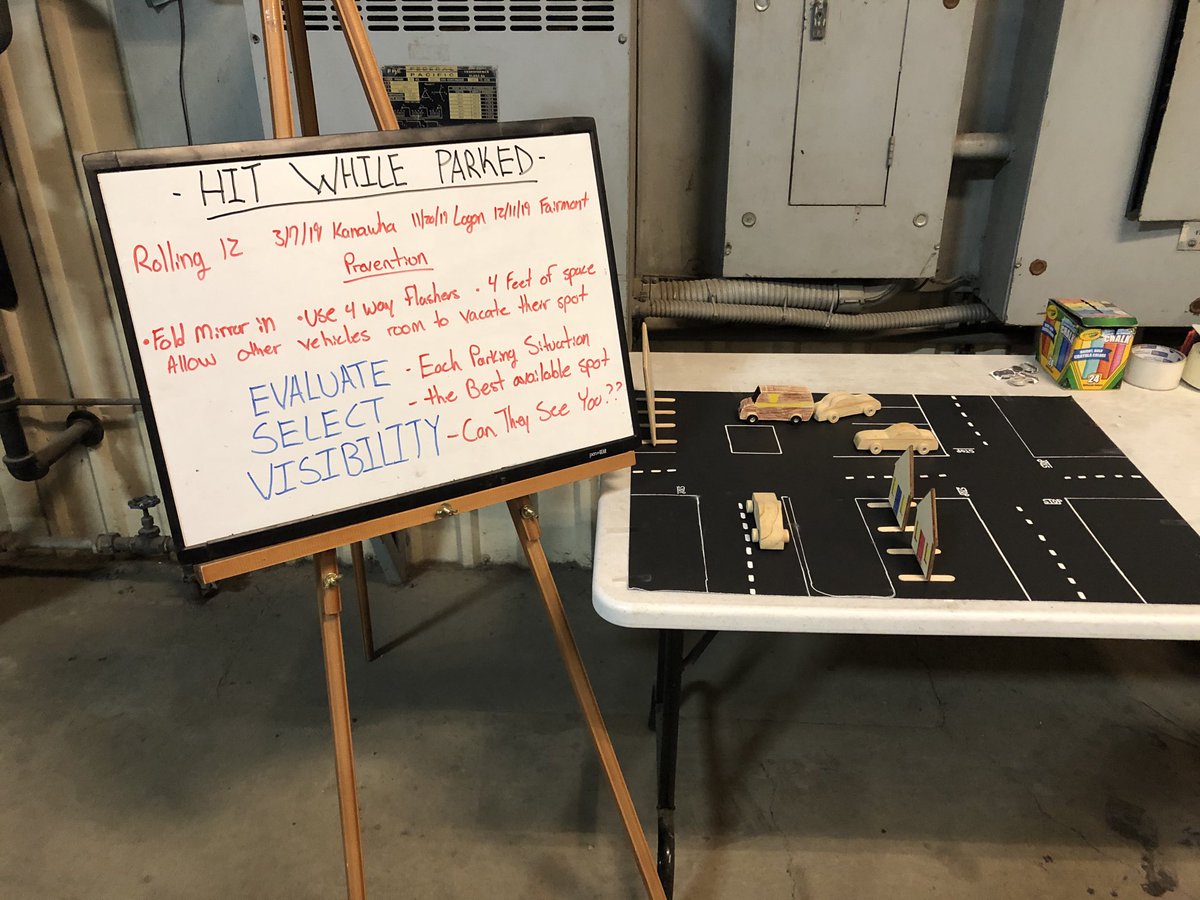 - HIT WHILE PARKED -
Rolling 12 3/7/19 Kanawha 11/20/19 Logan 12/11/19 Fairmont
Prevention
• Fold Mirror in • Use 4 way flashers • 4 Feet of space
Allow other vehicles room to vacate their spot
EVALUATE - Each Parking Situation
SELECT - the Best available spot
VISIBILITY - Can They See You??
FEDERAL
PACIFIC
Crayola
CHALK
24
STOP
STOP